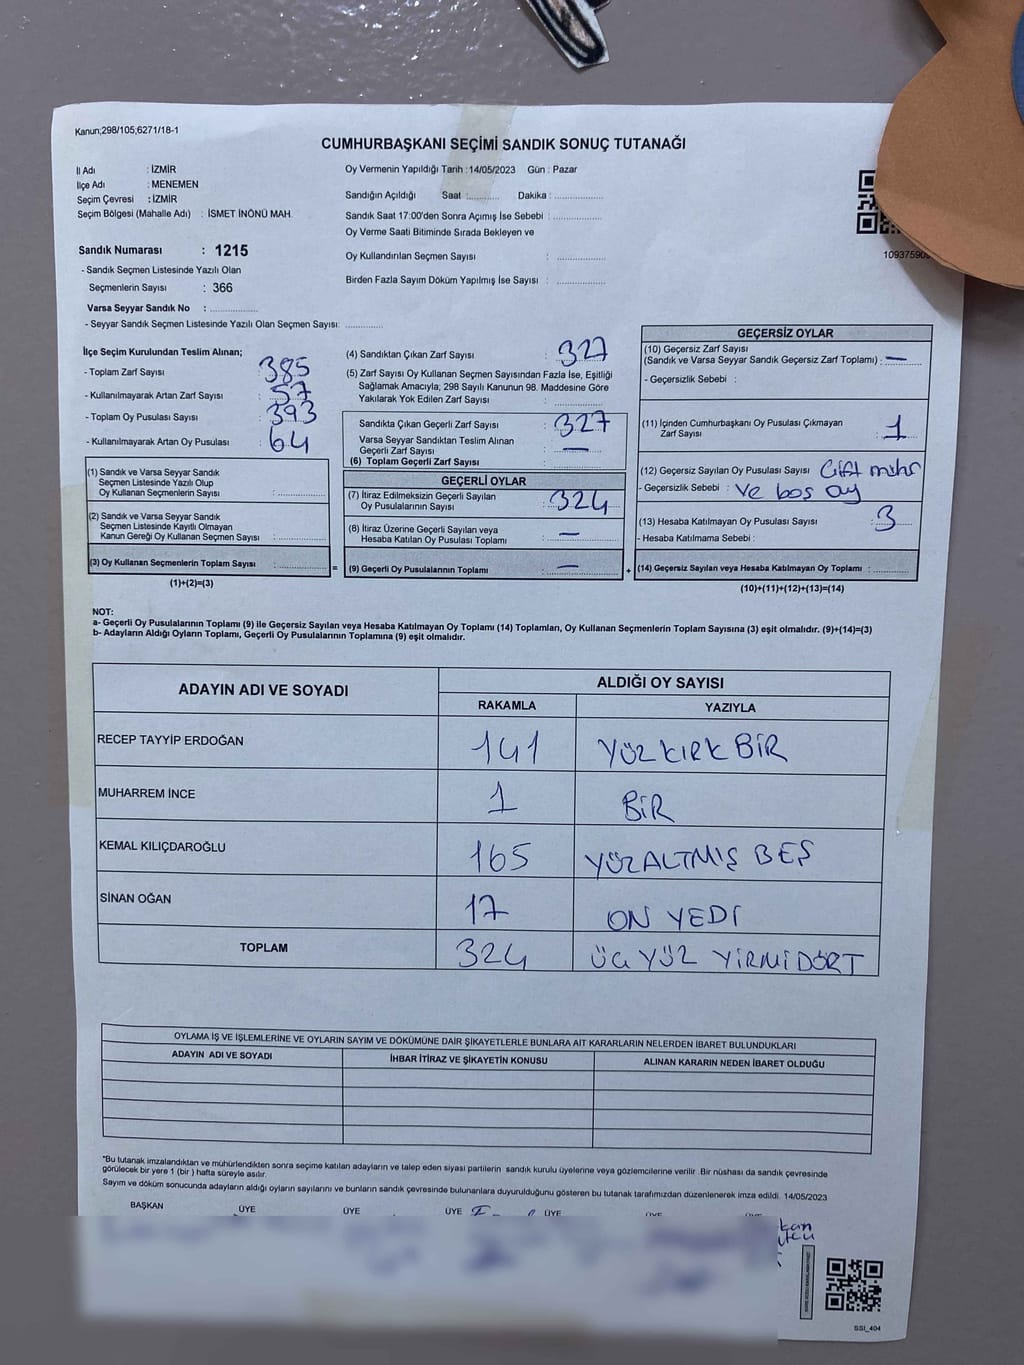 Kanun;298/105;6271/18-1
CUMHURBAŞKANI SEÇİMİ SANDIK SONUÇ TUTANAĞI
İl Adı : İZMİR
İlçe Adı : MENEMEN
Seçim Çevresi : İZMİR
Seçim Bölgesi (Mahalle Adı) : İSMET İNÖNÜ MAH.
Oy Vermenin Yapıldığı Tarih :14/05/2023 Gün : Pazar
Sandığın Açıldığı Saat :........... Dakika :................
Sandık Saat 17:00'den Sonra Açımış İse Sebebi :................
Oy Verme Saati Bitiminde Sırada Bekleyen ve
Oy Kullandırılan Seçmen Sayısı :................
Birden Fazla Sayım Döküm Yapılmış İse Sayısı :................
Sandık Numarası : 1215
- Sandık Seçmen Listesinde Yazılı Olan
Seçmenlerin Sayısı : 366
Varsa Seyyar Sandık No :................
- Seyyar Sandık Seçmen Listesinde Yazılı Olan Seçmen Sayısı: ............
İlçe Seçim Kurulundan Teslim Alınan;
- Toplam Zarf Sayısı : 385
- Kullanılmayarak Artan Zarf Sayısı : 57
- Toplam Oy Pusulası Sayısı : 393
- Kullanılmayarak Artan Oy Pusulası : 64
(1) Sandık ve Varsa Seyyar Sandık
Seçmen Listesinde Yazılı Olup
Oy Kullanan Seçmenlerin Sayısı :................
(2) Sandık ve Varsa Seyyar Sandık
Seçmen Listesinde Kayıtlı Olmayan
Kanun Gereği Oy Kullanan Seçmen Sayısı :................
(3) Oy Kullanan Seçmenlerin Toplam Sayısı :................
(1)+(2)=(3)
(4) Sandıktan Çıkan Zarf Sayısı : 327
(5) Zarf Sayısı Oy Kullanan Seçmen Sayısından Fazla İse, Eşitliği
Sağlamak Amacıyla, 298 Sayılı Kanunun 98. Maddesine Göre
Yakılarak Yok Edilen Zarf Sayısı :................
Sandıkta Çıkan Geçerli Zarf Sayısı : 327
Varsa Seyyar Sandıktan Teslim Alınan
Geçerli Zarf Sayısı : —
(6) Toplam Geçerli Zarf Sayısı :................
GEÇERLİ OYLAR
(7) İtiraz Edilmeksizin Geçerli Sayılan
Oy Pusulalarının Sayısı : 324
(8) İtiraz Üzerine Geçerli Sayılan veya
Hesaba Katılan Oy Pusulası Toplamı : —
= (9) Geçerli Oy Pusulalarının Toplamı : — +
GEÇERSİZ OYLAR
(10) Geçersiz Zarf Sayısı
(Sandık ve Varsa Seyyar Sandık Geçersiz Zarf Toplamı) : —
- Geçersizlik Sebebi :
(11) İçinden Cumhurbaşkanı Oy Pusulası Çıkmayan
Zarf Sayısı : 1
(12) Geçersiz Sayılan Oy Pusulası Sayısı Çift mühr
- Geçersizlik Sebebi : ve boş oy
(13) Hesaba Katılmayan Oy Pusulası Sayısı : 3
- Hesaba Katılmama Sebebi :
(14) Geçersiz Sayılan veya Hesaba Katılmayan Oy Toplamı :............
(10)+(11)+(12)+(13)=(14)
NOT:
a- Geçerli Oy Pusulalarının Toplamı (9) ile Geçersiz Sayılan veya Hesaba Katılmayan Oy Toplamı (14) Toplamları, Oy Kullanan Seçmenlerin Toplam Sayısına (3) eşit olmalıdır. (9)+(14)=(3)
b- Adayların Aldığı Oyların Toplamı, Geçerli Oy Pusulalarının Toplamına (9) eşit olmalıdır.
ADAYIN ADI VE SOYADI ALDIĞI OY SAYISI
RAKAMLA YAZIYLA
RECEP TAYYİP ERDOĞAN 141 YÜZ KIRK BİR
MUHARREM İNCE 1 BİR
KEMAL KILIÇDAROĞLU 165 YÜZALTMIŞ BEŞ
SİNAN OĞAN 17 ON YEDİ
TOPLAM 324 ÜÇ YÜZ YİRMİ DÖRT
OYLAMA İŞ VE İŞLEMLERİNE VE OYLARIN SAYIM VE DÖKÜMÜNE DAİR ŞİKAYETLERLE BUNLARA AİT KARARLARIN NELERDEN İBARET BULUNDUKLARI
ADAYIN ADI VE SOYADI İHBAR İTİRAZ VE ŞİKAYETİN KONUSU ALINAN KARARIN NEDEN İBARET OLDUĞU
*Bu tutanak imzalandıktan ve mühürlendikten sonra seçime katılan adayların ve talep eden siyasi partilerin sandık kurulu üyelerine veya gözlemcilerine verilir. Bir nüshası da sandık çevresinde
görülecek bir yere 1 (bir) hafta süreyle asılır.
Sayım ve döküm sonucunda adayların aldığı oyların sayılarını ve bunların sandık çevresinde bulunanlara duyurulduğunu gösteren bu tutanak tarafımızdan düzenlenerek imza edildi. 14/05/2023
BAŞKAN ÜYE ÜYE ÜYE ÜYE
SSI_404